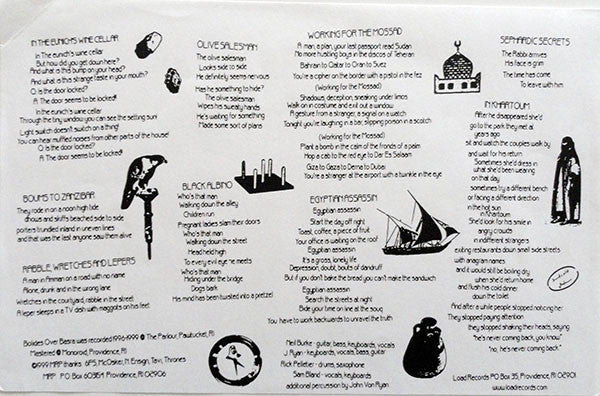 IN THE EUNICH'S WINE CELLAR
In The eunich's wine cellar
But how did you get down here?
And what is this bump on your head?
And what is this strange taste in your mouth?
Q. is the door locked?
A. The door seems to be locked!
In the eunich's wine cellar
Through the tiny window you can see the setting sun!
Light switch doesn't switch on a thing!
You can hear muffled noises from other parts of the house!
Q. is the door locked?
A. The door seems to be locked!
BOUMS TO ZANZIBAR
They rode in on a moonlight tide
dhouss and skiffs beached side to side
porters trundled inland in uneven lines
and that was the last anyone saw them alive
RABBLE, WRETCHES AND LEPERS
A man in Amman on a road with no name
Alone, drunk and in the wrong lane
Wretches in the courtyard, rabble in the street
A leper sleeps in a TV dish with maggots on his feet
Bolides Over Basra was recorded 1996-1999 @ The Parlour, Pawtucket, RI
Mastered @ Monorod, Providence, RI
©1999 MAP thanks: 6P5, McOsker, N. Ensign, Tavi, Thrones
MAP P.O. Box 603154 Providence, RI 02906
OLIVE SALESMAN
The olive salesman
Looks side to side
He definitely seems nervous
Has he something to hide?
The olive salesman
Wipes his sweaty hands
He's waiting for something
Made some sort of plans
BLACK ALBINO
Who's that man
Walking down the alley
Children run
Pregnant ladies slam their doors
Who's that man
Walking down the street
Head held high
To every evil eye he meets
Who's that man
Hiding under the bridge
Dogs bark
His mind has been twisted into a pretzel
WORKING FOR THE MOSSAD
A man, a plan, your last passport read Sudan
No more hustling boys in the discos of Teheran
Bahrain to Qatar to Oran to Suez
You're a cipher on the border with a pistol in the fez
(Working for the Mossad)
Shadows, deception, sneaking under limos
Walk on in costume and exit out a window
A gesture from a stranger, a signal on a watch
Tonight you're laughing in a bar, slipping poison in a scotch
(Working for the Mossad)
Plant a bomb in the calm of the fronds of a palm
Hop a cab to the red eye to Dar Es Salaam
Giza to Gaza to Dema to Dubai
You're a stranger at the airport with a twinkle in the eye
EGYPTIAN ASSASSIN
Egyptian assassin
Start the day off right
Toast, coffee, a piece of fruit
Your office is waiting on the roof
Egyptian assassin
It's a gross, lonely life
Depression, doubt, bouts of dandruff
But if you don't bake the bread you can't make the sandwich
Egyptian assassin
Search the streets at night
Bide your time on line at the souq
You have to work backwards to unravel the truth
Neil Burke - guitar, bass, keyboards, vocals
J. Ryan - keyboards, vocals, bass, guitar
Rick Pelletier - drums, saxophone
Sam Bland - vocals, keyboards
additional percussion by John Von Ryan
SEPHARDIC SECRETS
The Rabbi arrives
His face is grim
The time has come
To leave with him
IN KHARTOUM
After he disappeared she'd
go to the park they met at
years ago
sit and watch the couples walk by
and wait for his return
Sometimes she'd dress in
what she'd been wearing
on that day
sometimes try a different bench
or facing a different direction
in the hot sun
in Khartoum
She'd look for his smile in
angry crowds
in indifferent strangers
exiting restaurants down small side streets
with anagram names
and it would still be boiling dry
when she'd return home
and flush his cold dinner
down the toilet
And after a while people stopped noticing her
They stopped paying attention
they stopped shaking their heads, saying
"he's never coming back, you know"
"no, he's never coming back."
Load Records PO Box 35, Providence, RI 02901
www.loadrecords.com